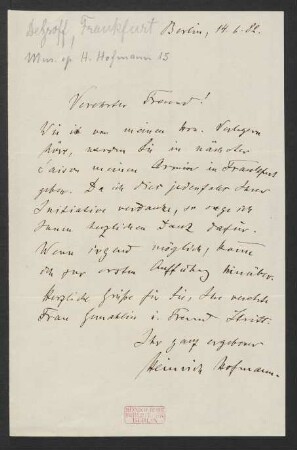 Dessoff, Frankfurt
Berlin, 14.6.82.
Mus. ep. H. Hofmann 15
Verehrter Freund!
Wie ich von meinen Hrn. Verlegern
höre, werden Sie in nächster
Saison meinen Armin in Frankfurt
geben. Da ich dies jedenfalls Ihrer
Initiative verdanke, so sage ich
Ihnen herzlichen Dank dafür.
Wenn irgend möglich, komme
ich zur ersten Aufführung hinüber.
Herzliche Grüße für Sie, Ihre verehrte
Frau Gemahlin u. Freund
Ihr ganz ergebener
Heinrich Hofmann.
BERLIN